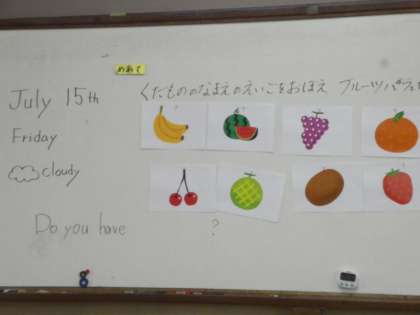 めあて
くだもののなまえのえいごをおぼえ フルーツパフェを
July 15th
Friday
cloudy
Do you have ?